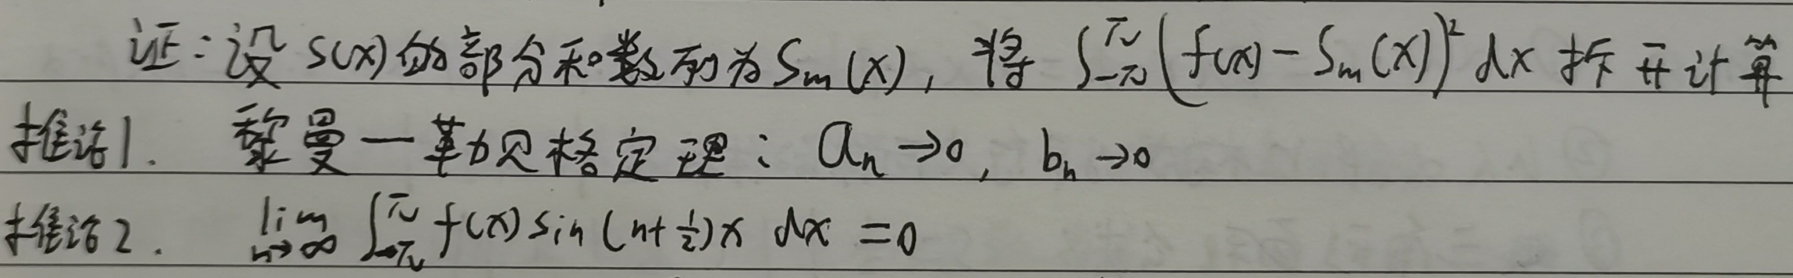 证：设 S(x) 的部分和数列为 Sₘ(x)，将 ∫_{-π}^{π} (f(x) - Sₘ(x))² dx 拆开计算
推论1. 黎曼一勒贝格定理：aₙ→0, bₙ→0
推论2. lim_{n→∞} ∫_{-π}^{π} f(x) sin (n+½)x dx = 0